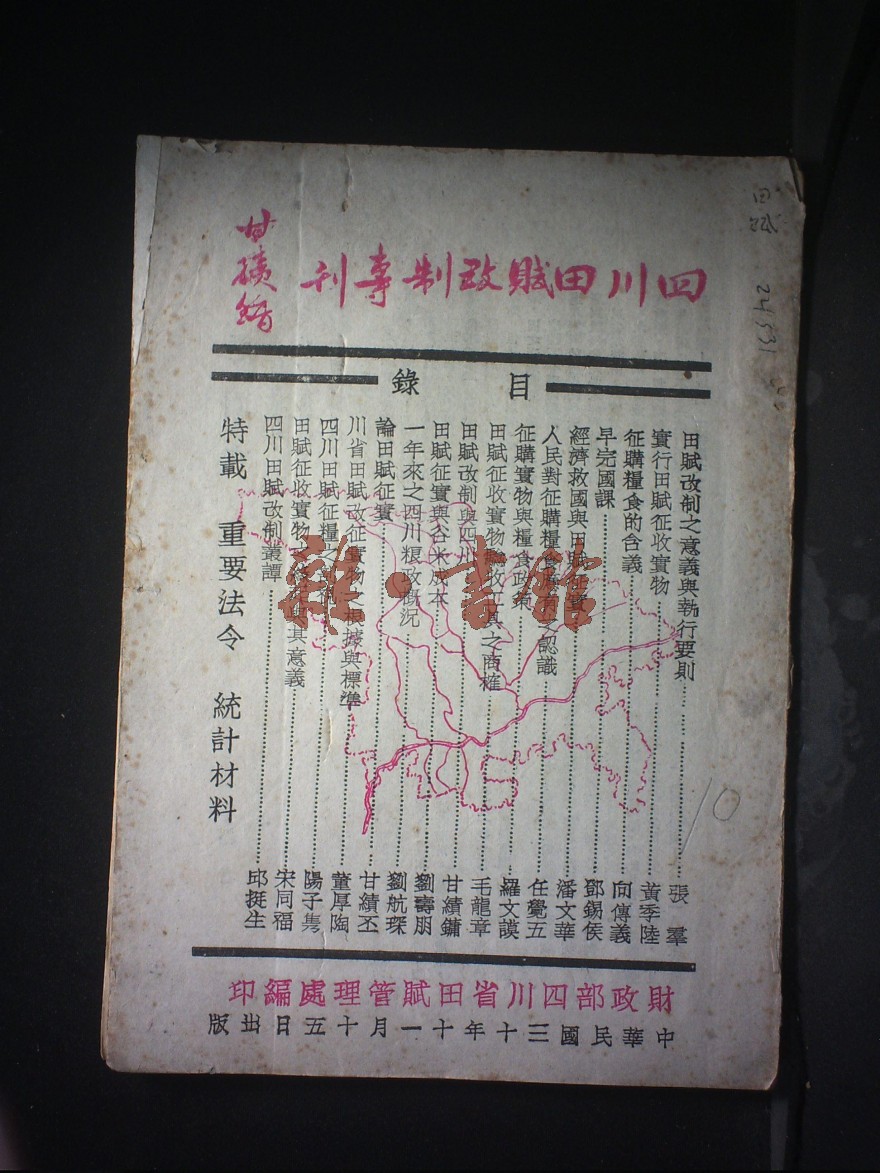 四川田賦改制專刊
甘績鏞
目錄
田賦改制之意義與執行要則……張羣
實行田賦征收實物……黃季陸
征購糧食的含義……向傳義
早完國課……鄧錫侯
經濟救國與田賦征實……潘文華
人民對征購糧食應有之認識……任覺五
征購實物與糧食政策……羅文謨
田賦征收實物驗收工具之商榷……毛龍章
田賦改制與四川……甘績鏞
田賦征實與谷米成本……劉壽朋
一年來之四川粮政概況……劉航琛
論田賦征實……甘績丕
川省田賦改征實物之根據與標準……董厚陶
四川田賦征糧之……陽子雋
田賦征收實物之 其意義……宋同福
四川田賦改制叢譚……邱挺生
特載 重要法令 統計材料
財政部四川省田賦管理處編印
中華民國三十年十一月十五日出版
雜·書館
田賦
24531
10